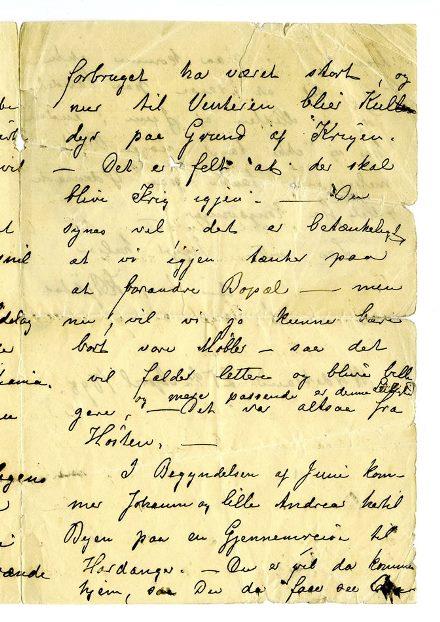 forbruget har været stort, og
nu til Vinteren blir Kullene
dyr paa Grund af Krigen.
– Det er felt at der skal
blive Krig igjen. — Du
synes vel det er betænkeligt
at vi igjen tænker paa
at forandre Bopæl — men
nu vil vi jo kunne bære
bort vore Møbler – saa det
vil falder lettere og blive bille
og meget passende er denne
gere, — Det var altsaa fra
Høsten, —
I Begyndelsen af Juni kom-
mer Johann og lille Andrea hertil
Byen paa en Gjennemreise til
Hardanger. – Du er vel da kommen
hjem, saa Du da faar see